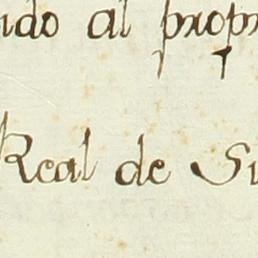 ido al prop
Real de Su